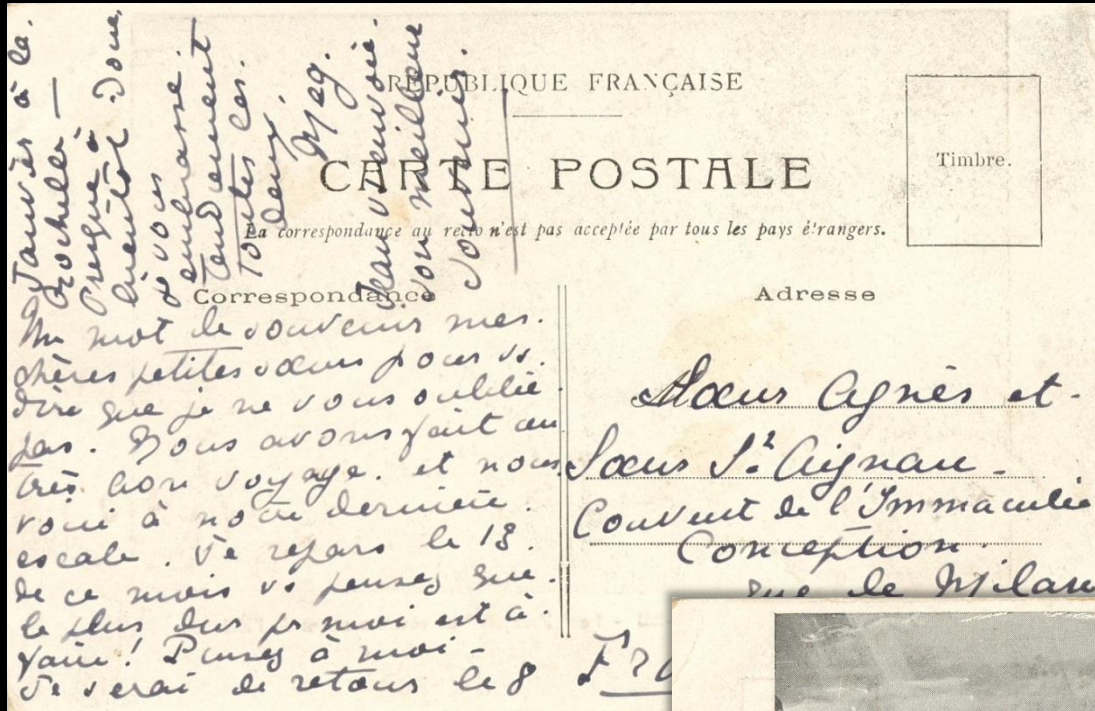 RÉPUBLIQUE FRANÇAISE
CARTE POSTALE
La correspondance au recto n'est pas acceptée par tous les pays étrangers.
Timbre.
Correspondance
Un mot de souvenir mes
chères petites sœurs pour vs
dire que je ne vous oublie
pas. Nous avons fait un
très bon voyage. et nous
voici à notre dernière
escale. Je repars le 13
de ce mois vs pensez que
le plus dur pr moi est à
faire! Pensez à moi -
Je serai de retour le 8
Janvier à la
Rochelle —
Presque à
bientôt donc
& vous
embrasse
tendrement
toutes les
deux
Mag.
Jean vs envoie
son meilleur
souvenir.
Adresse
Sœur Agnès et
Sœur St Aignan -
Couvent de l'Immaculée
Conception.
rue de Milan